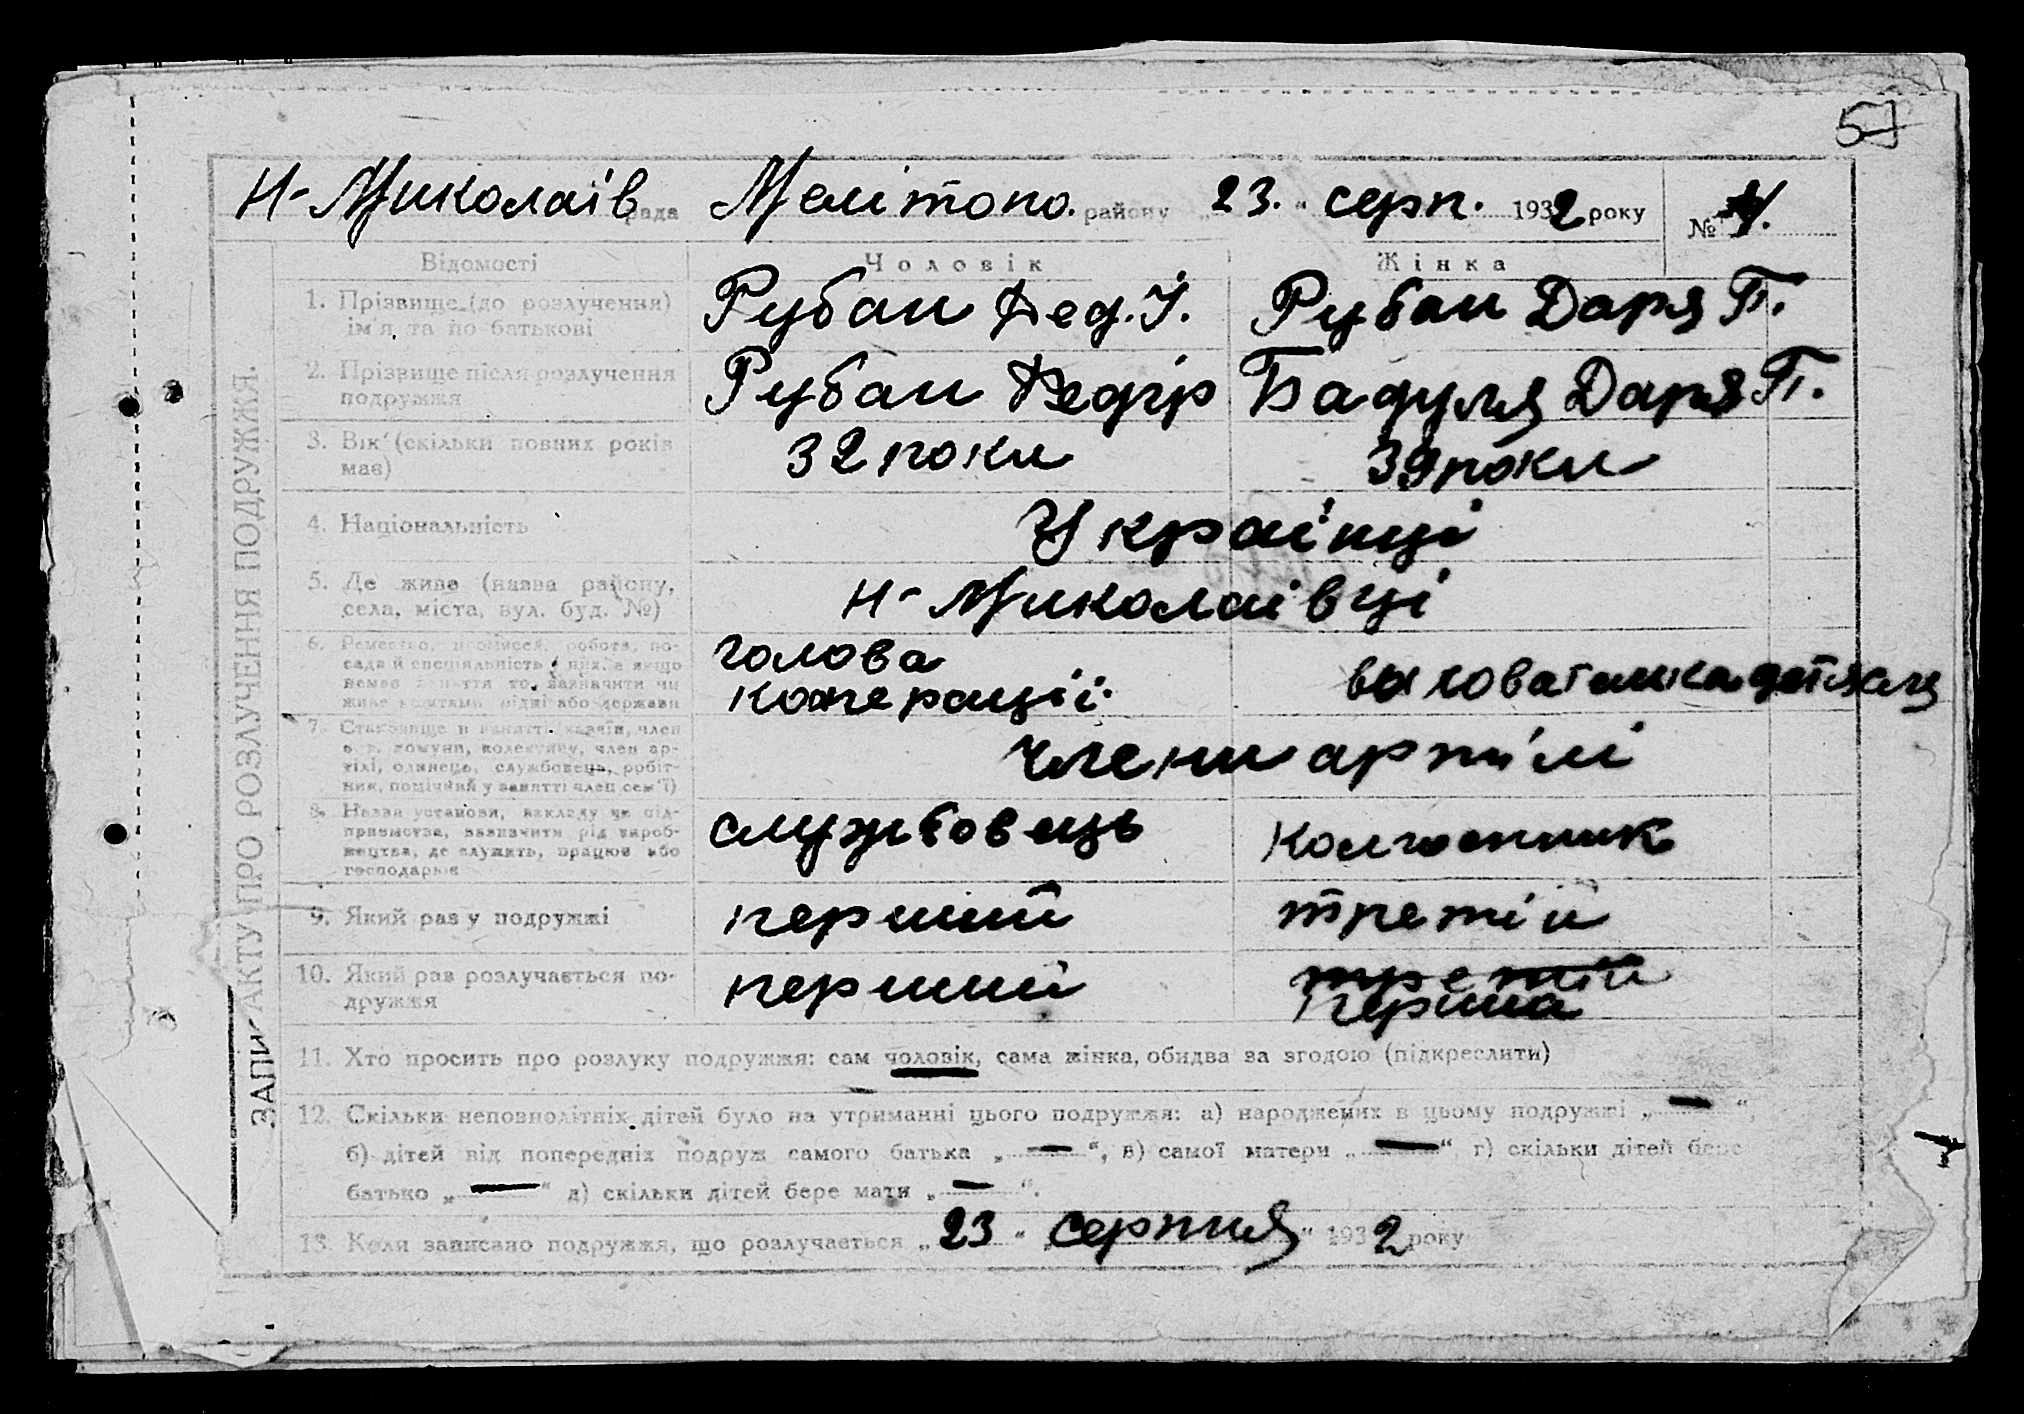 57
Н-Миколаїв рада Мелітопо. району „23.“ серп. 1932 року № 4.
Відомості Чоловік Жінка
ЗАПИС АКТУ ПРО РОЗЛУЧЕННЯ ПОДРУЖЖЯ.
1. Прізвище (до розлучення) Рубан Фед. І. Рубан Даря П.
ім'я та по батькові
2. Прізвище після розлучення Рубан Федір Бадуля Даря П.
подружжя
3. Вік (скільки повних років 32 роки 39 роки
має)
4. Національність Українці
5. Де живе (назва району, Н-Миколаївці
села, міста, вул. буд. №)
6. Ремество, промисел, робота, по- голова
сада й спеціяльність
кооперації.
7. Становище в занятті: хазяїн, член члени артілі
комуни, колективу, член ар-
тілі, одинець, службовець, робіт-
ник, помічний у занятті член сем'ї)
8. Назва установи, закладу чи під- службовець колгоспник
приємства, зазначити рід вироб-
ництва, де служить, працює або
господарює
9. Який раз у подружжі перший третій
10. Який раз розлучається по- перший третій
дружжя перша
11. Хто просить про розлуку подружжя: сам чоловік, сама жінка, обидва за згодою (підкреслити)
12. Скільки неповнолітніх дітей було на утриманні цього подружжя: а) народжених в цьому подружжі „—“,
б) дітей від попередніх подруж самого батька „—“, в) самої матери „—“ г) скільки дітей бере
батько „—“ д) скільки дітей бере мати „—“.
13. Коли записано подружжя, що розлучається „23“ „серпня“ 1932 року